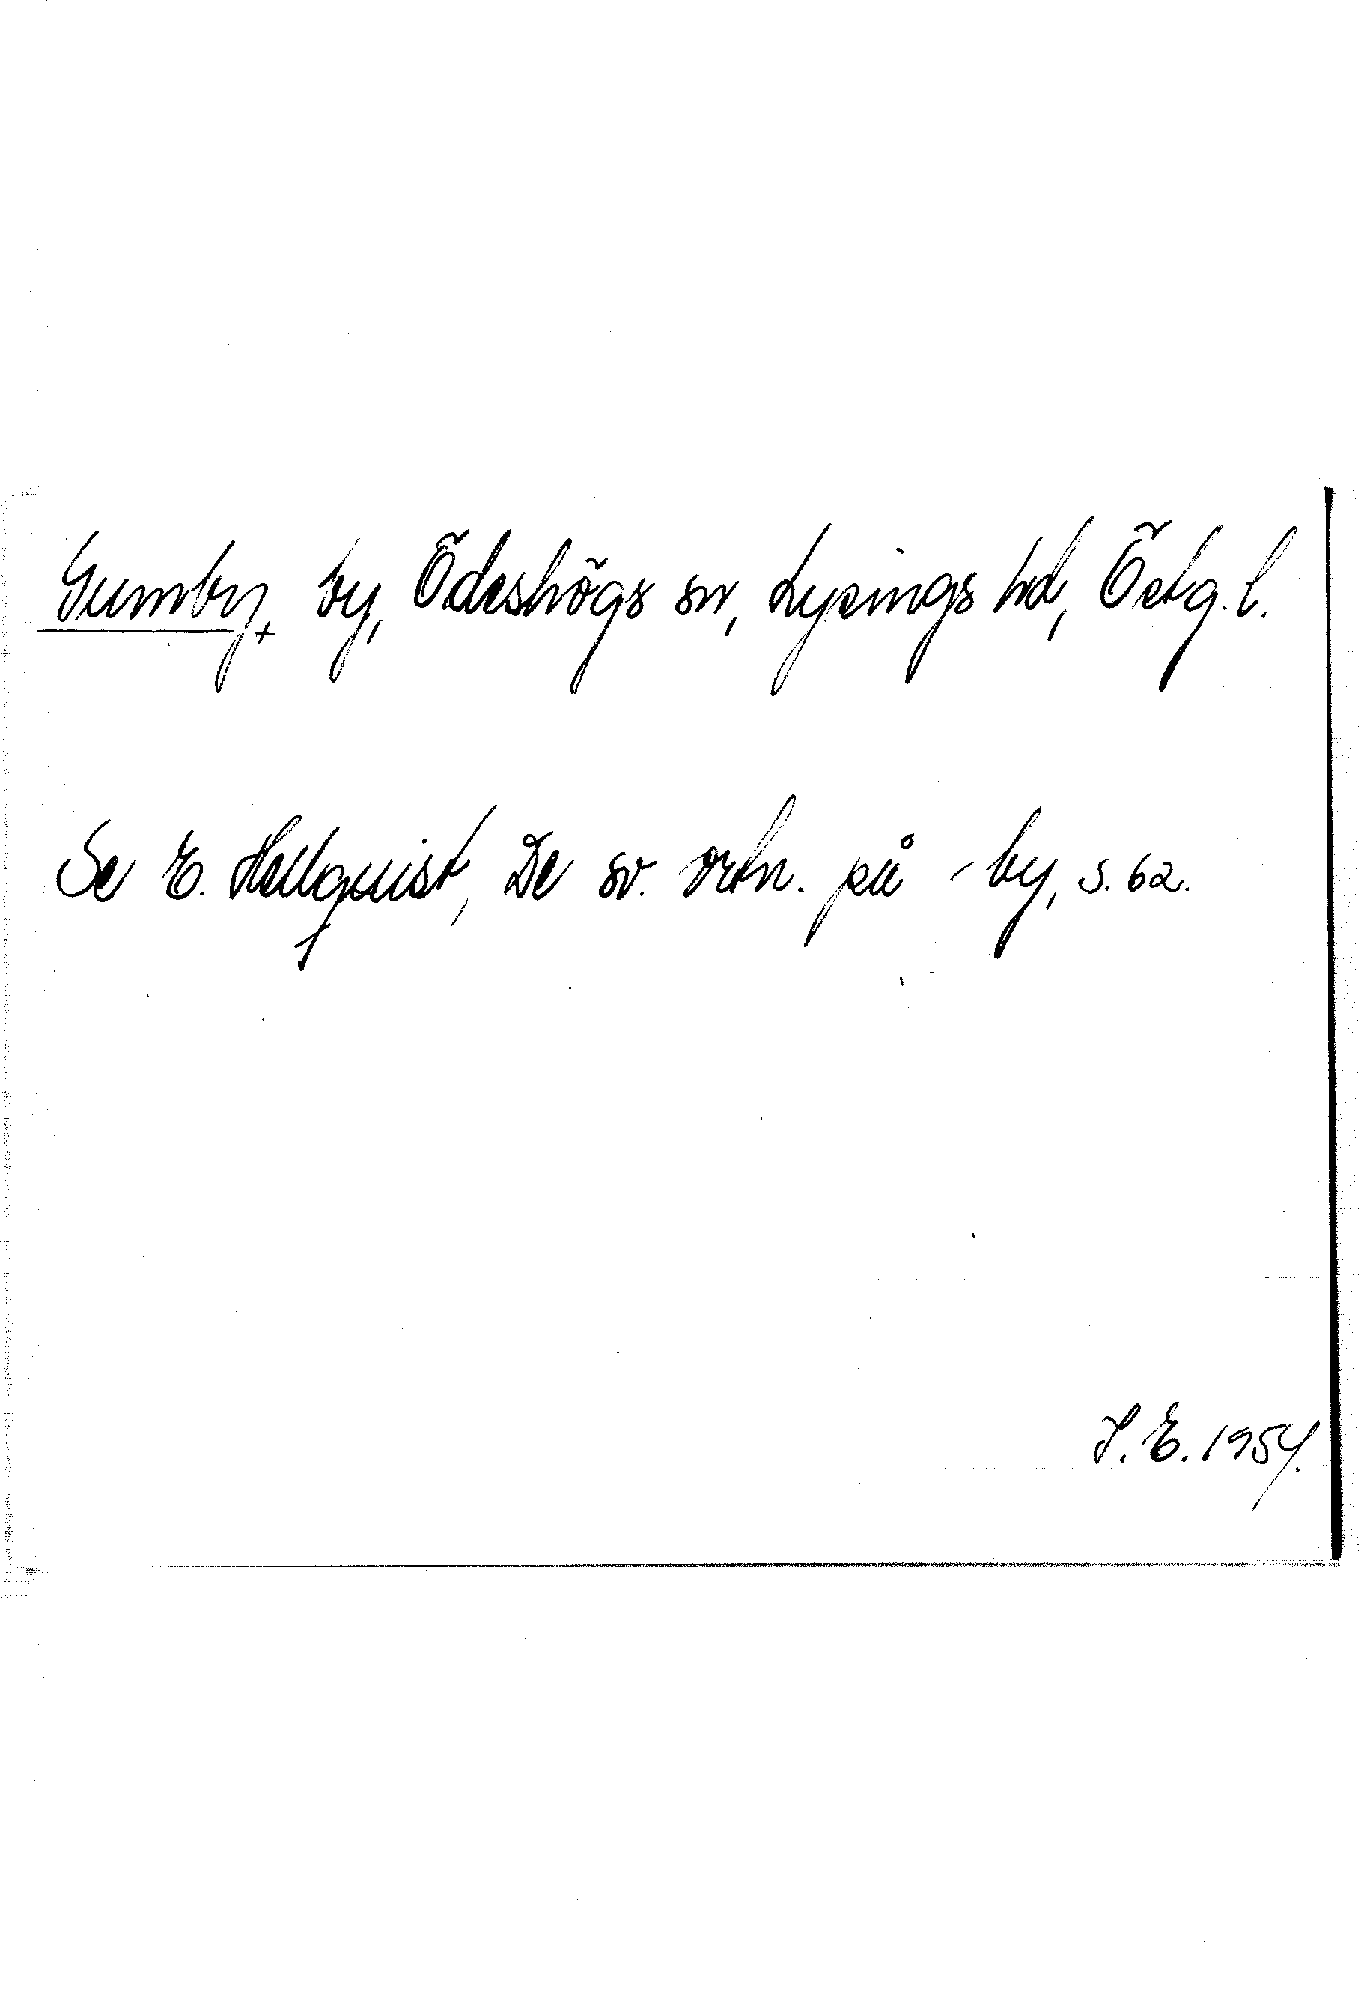 Gumby, by, Ödeshögs sn, Lysings hd, Östg. l.
Se E. Hellquist, De sv. ortn. på -by, s. 62.
I. E. 1954.